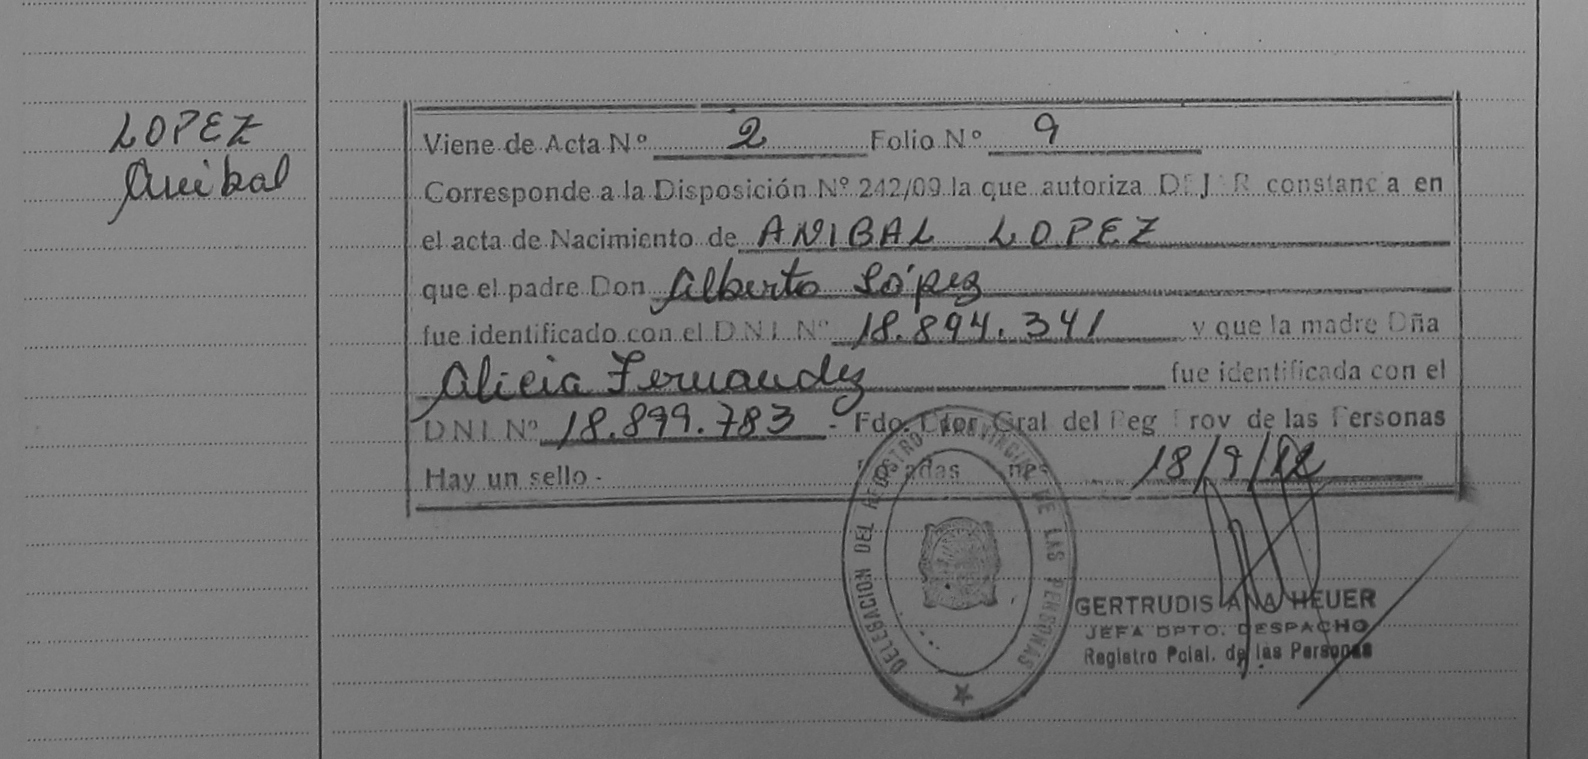 LOPEZ
Anibal
Viene de Acta Nº 2 Folio Nº 9
Corresponde a la Disposición Nº 242/09 la que autoriza DEJAR constancia en
el acta de Nacimiento de ANIBAL LOPEZ
que el padre Don Alberto López
fue identificado con el D.N.I. Nº 18.894.341 y que la madre Dña
Alicia Fernandez fue identificada con el
D.N.I. Nº 18.899.783 - Fdo. Dtor. Gral del Reg Prov de las Personas
Hay un sello - Posadas Mnes 18/9/12
DELEGACION DEL REGISTRO PROVINCIAL DE LAS PERSONAS
GERTRUDIS ANA HEUER
JEFA DPTO. DESPACHO
Registro Pcial. de las Personas